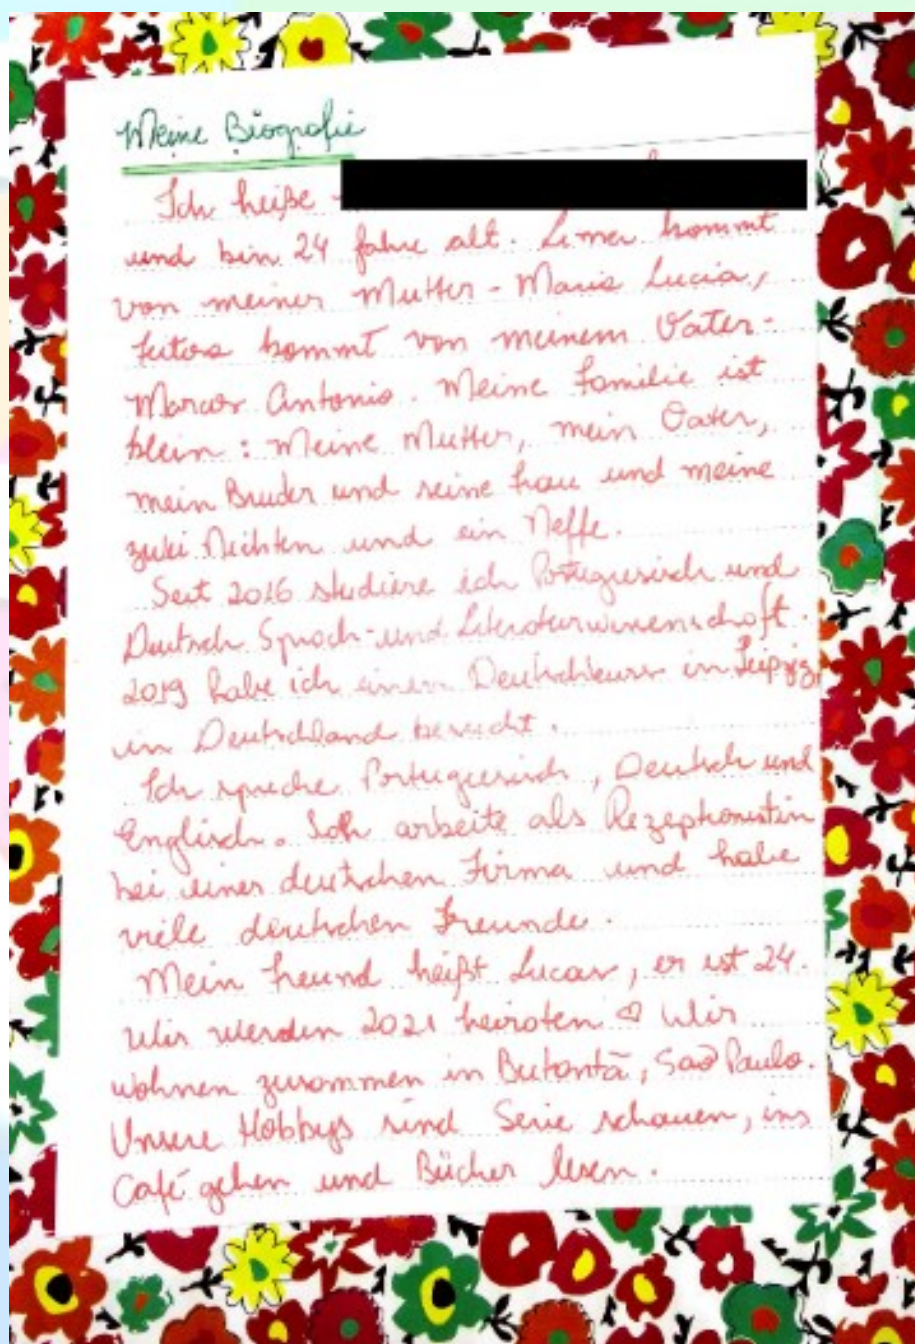 Meine Biografie
Ich heiße
und bin 24 Jahre alt. Lima kommt
von meiner Mutter - Maria Lucia,
kommt von meinem Vater -
Marcos Antonio. Meine Familie ist
klein: Meine Mutter, mein Vater,
mein Bruder und seine Frau und meine
zwei Nichten und ein Neffe.
Seit 2016 studiere ich Portugiesisch und
Deutsch Sprach- und Literaturwissenschaft.
2019 habe ich einen Deutschkurs in Leipzig
in Deutschland besucht.
Ich spreche Portugiesisch, Deutsch und
Englisch. Ich arbeite als Rezeptionistin
bei einer deutschen Firma und habe
viele deutschen Freunde.
Mein Freund heißt Lucas, er ist 24.
Wir werden 2021 heiraten ♡ Wir
wohnen zusammen in Butantã, São Paulo.
Unsere Hobbys sind Serie schauen, ins
Café gehen und Bücher lesen.